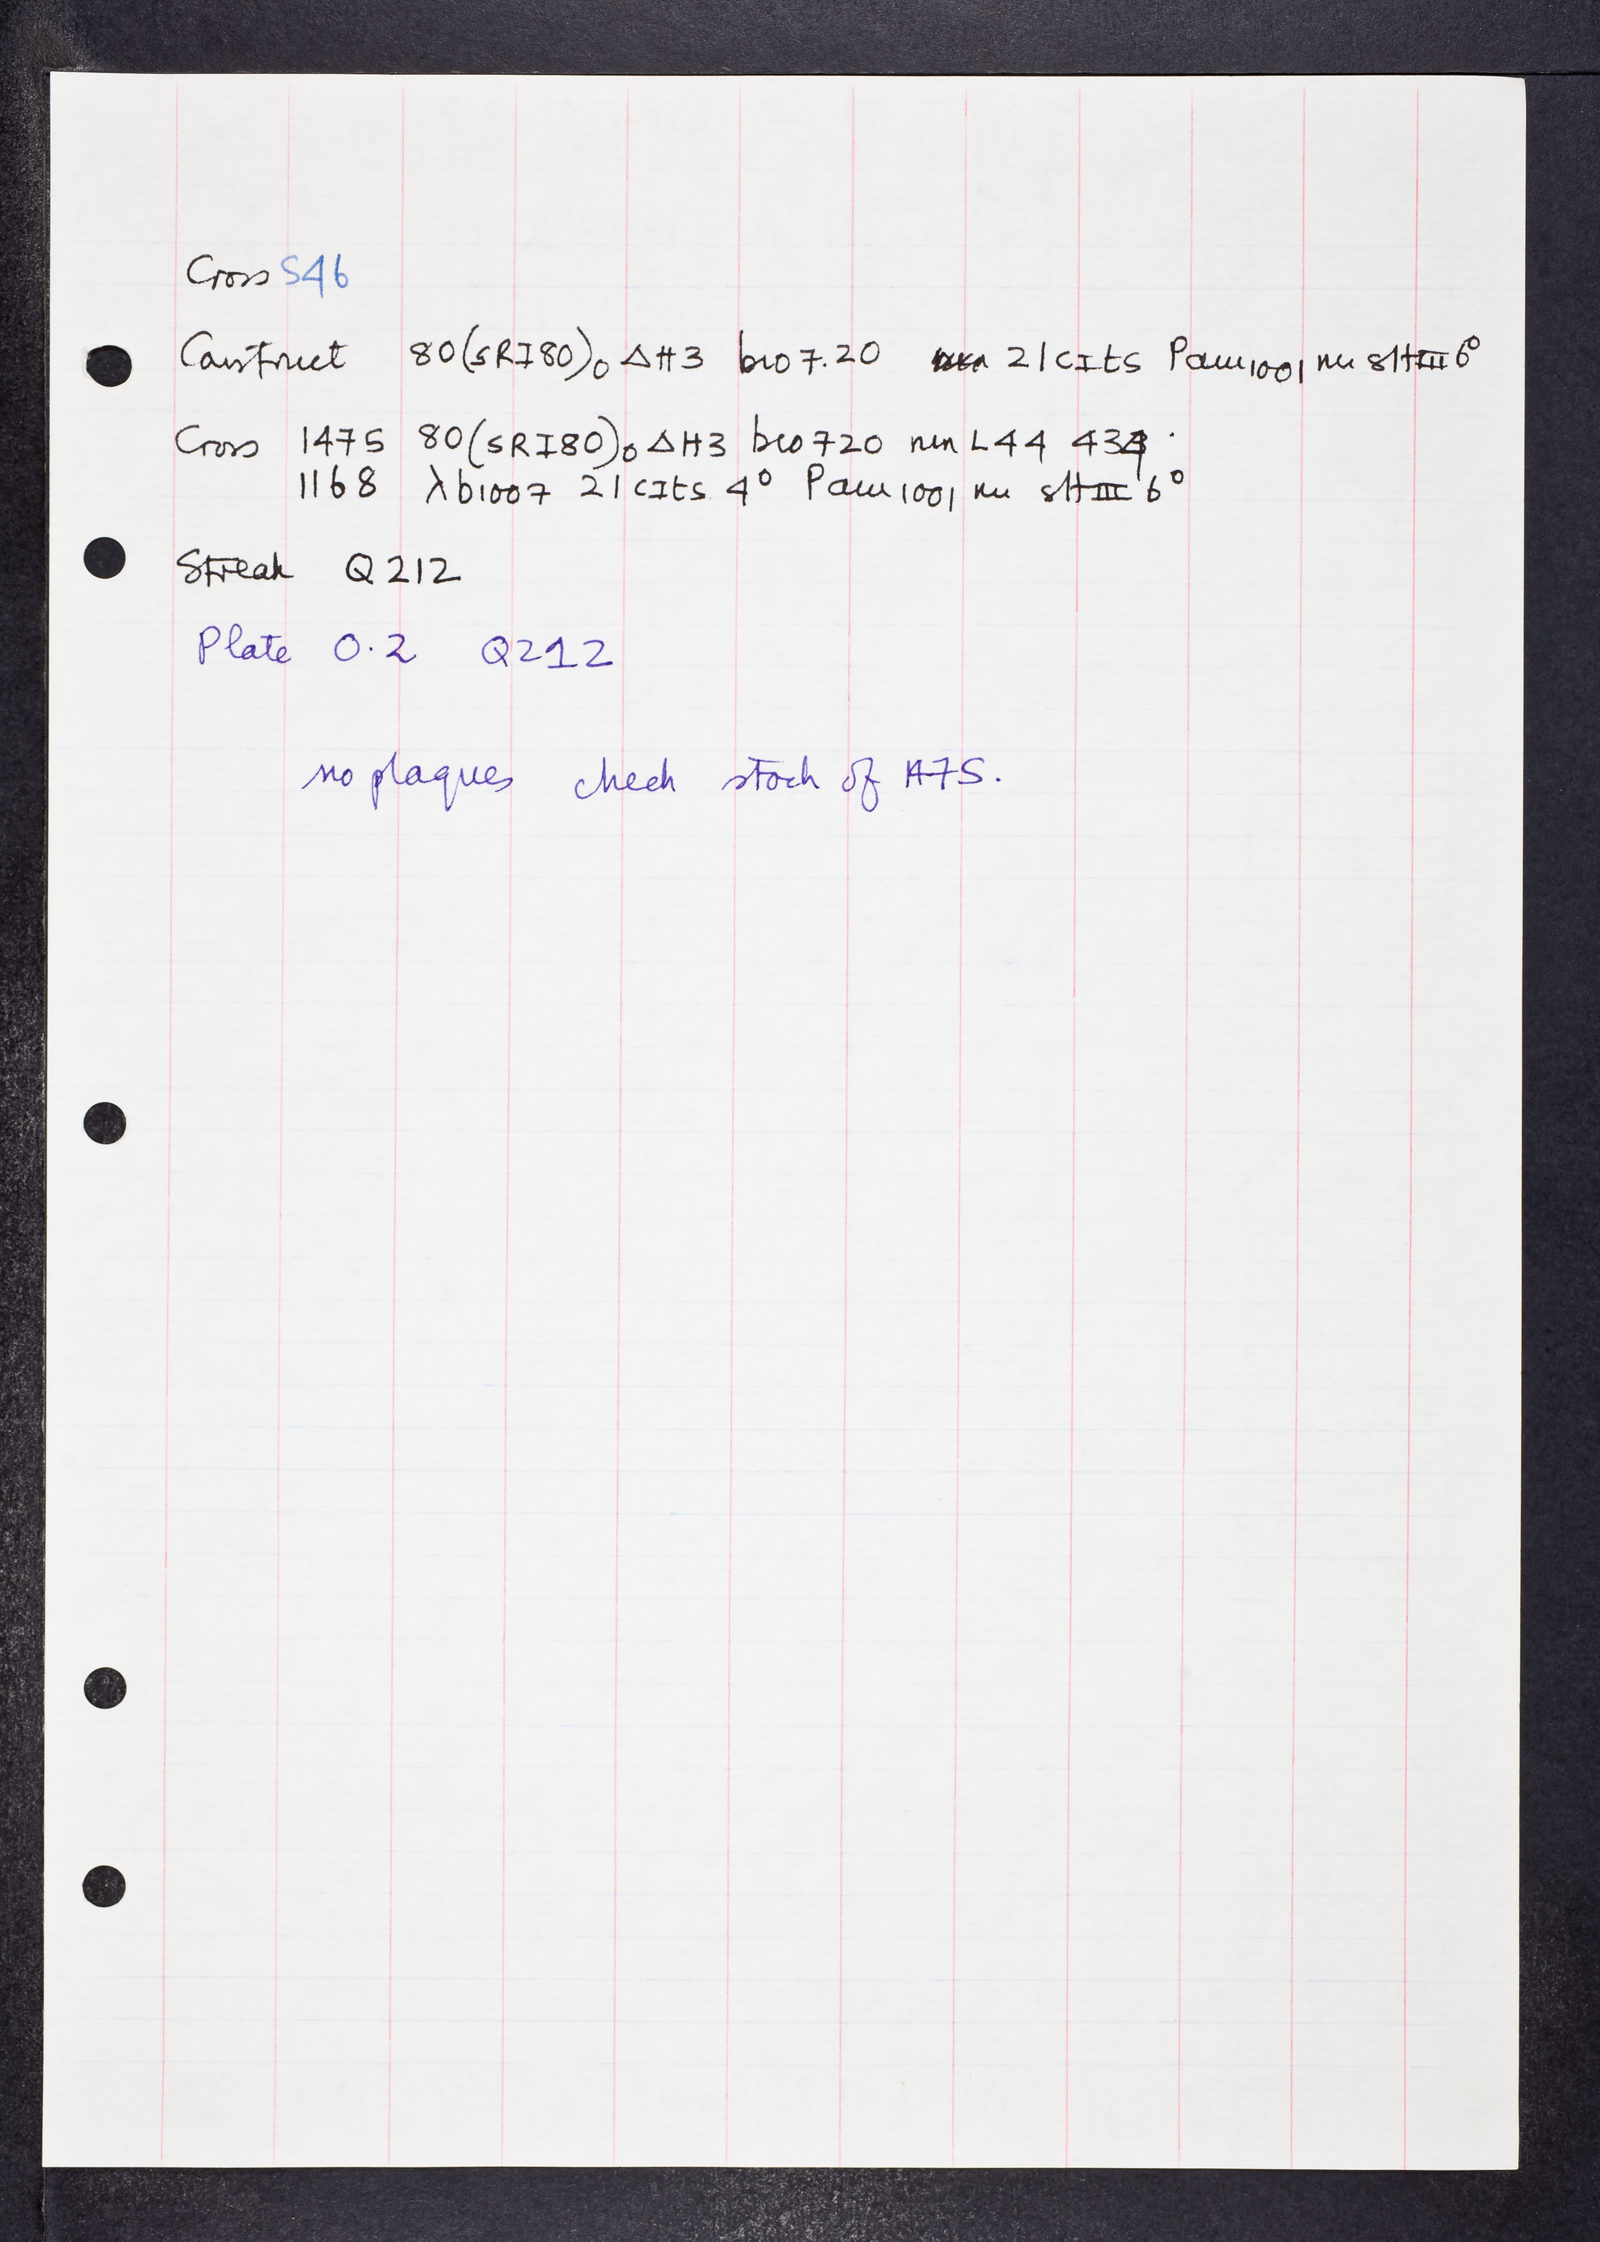 Cross S46
Construct 80(sRI80)₀ ΔH3 bio7.20 21cIts Pam1001 nu sHIII6°
Cross 1475 80(sRI80)₀ ΔH3 bio720 nin L44 434
1168 λb1007 21cIts 4° Pam1001 nu sHIII 6°
Streak Q212
Plate 0.2 Q212
no plaques check stock of 1475.